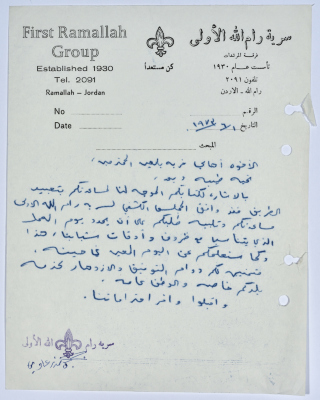 First Ramallah
Group
Established 1930
Tel. 2091
Ramallah - Jordan
سرية رام الله الأولى
فرقة المرشدات
تأسست عام ١٩٣٠
تلفون ٢٠٩١
رام الله - الاردن
كن مستعداً
No
Date
الرقم
التاريخ
المبحث
الاخوة أهالي قرية
تحية طيبة وبعد
بالاشارة لكتابكم الموجه لنا لمساعدتكم بتعبيد
الطريق فقد وافق المجلس الكشفي لسرية رام الله الاولى
مساعدتكم وتلبية طلبكم على أن يحدد يوم العمل
الذي يتناسب مع ظروف وأوقات هذا
وكما سنعلمكم عن اليوم المعين في حينه
متمنين لكم دوام التوفيق والازدهار لخدمة
بلدكم خاصة والوطن عامة
واقبلوا وافر احتراماتنا
سرية رام الله الأولى